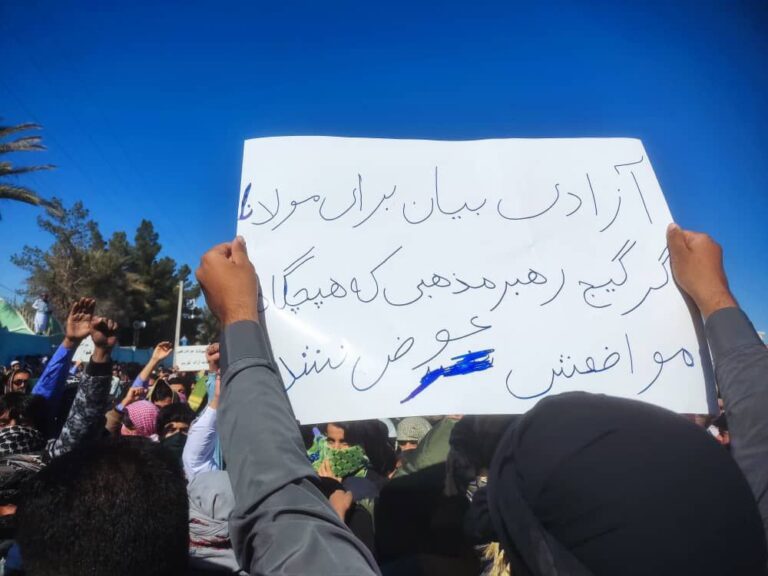 آزادی بیان برای مولانا
گرگیج رهبر مذهبی که هیچگاه
موافقش عوض نشد